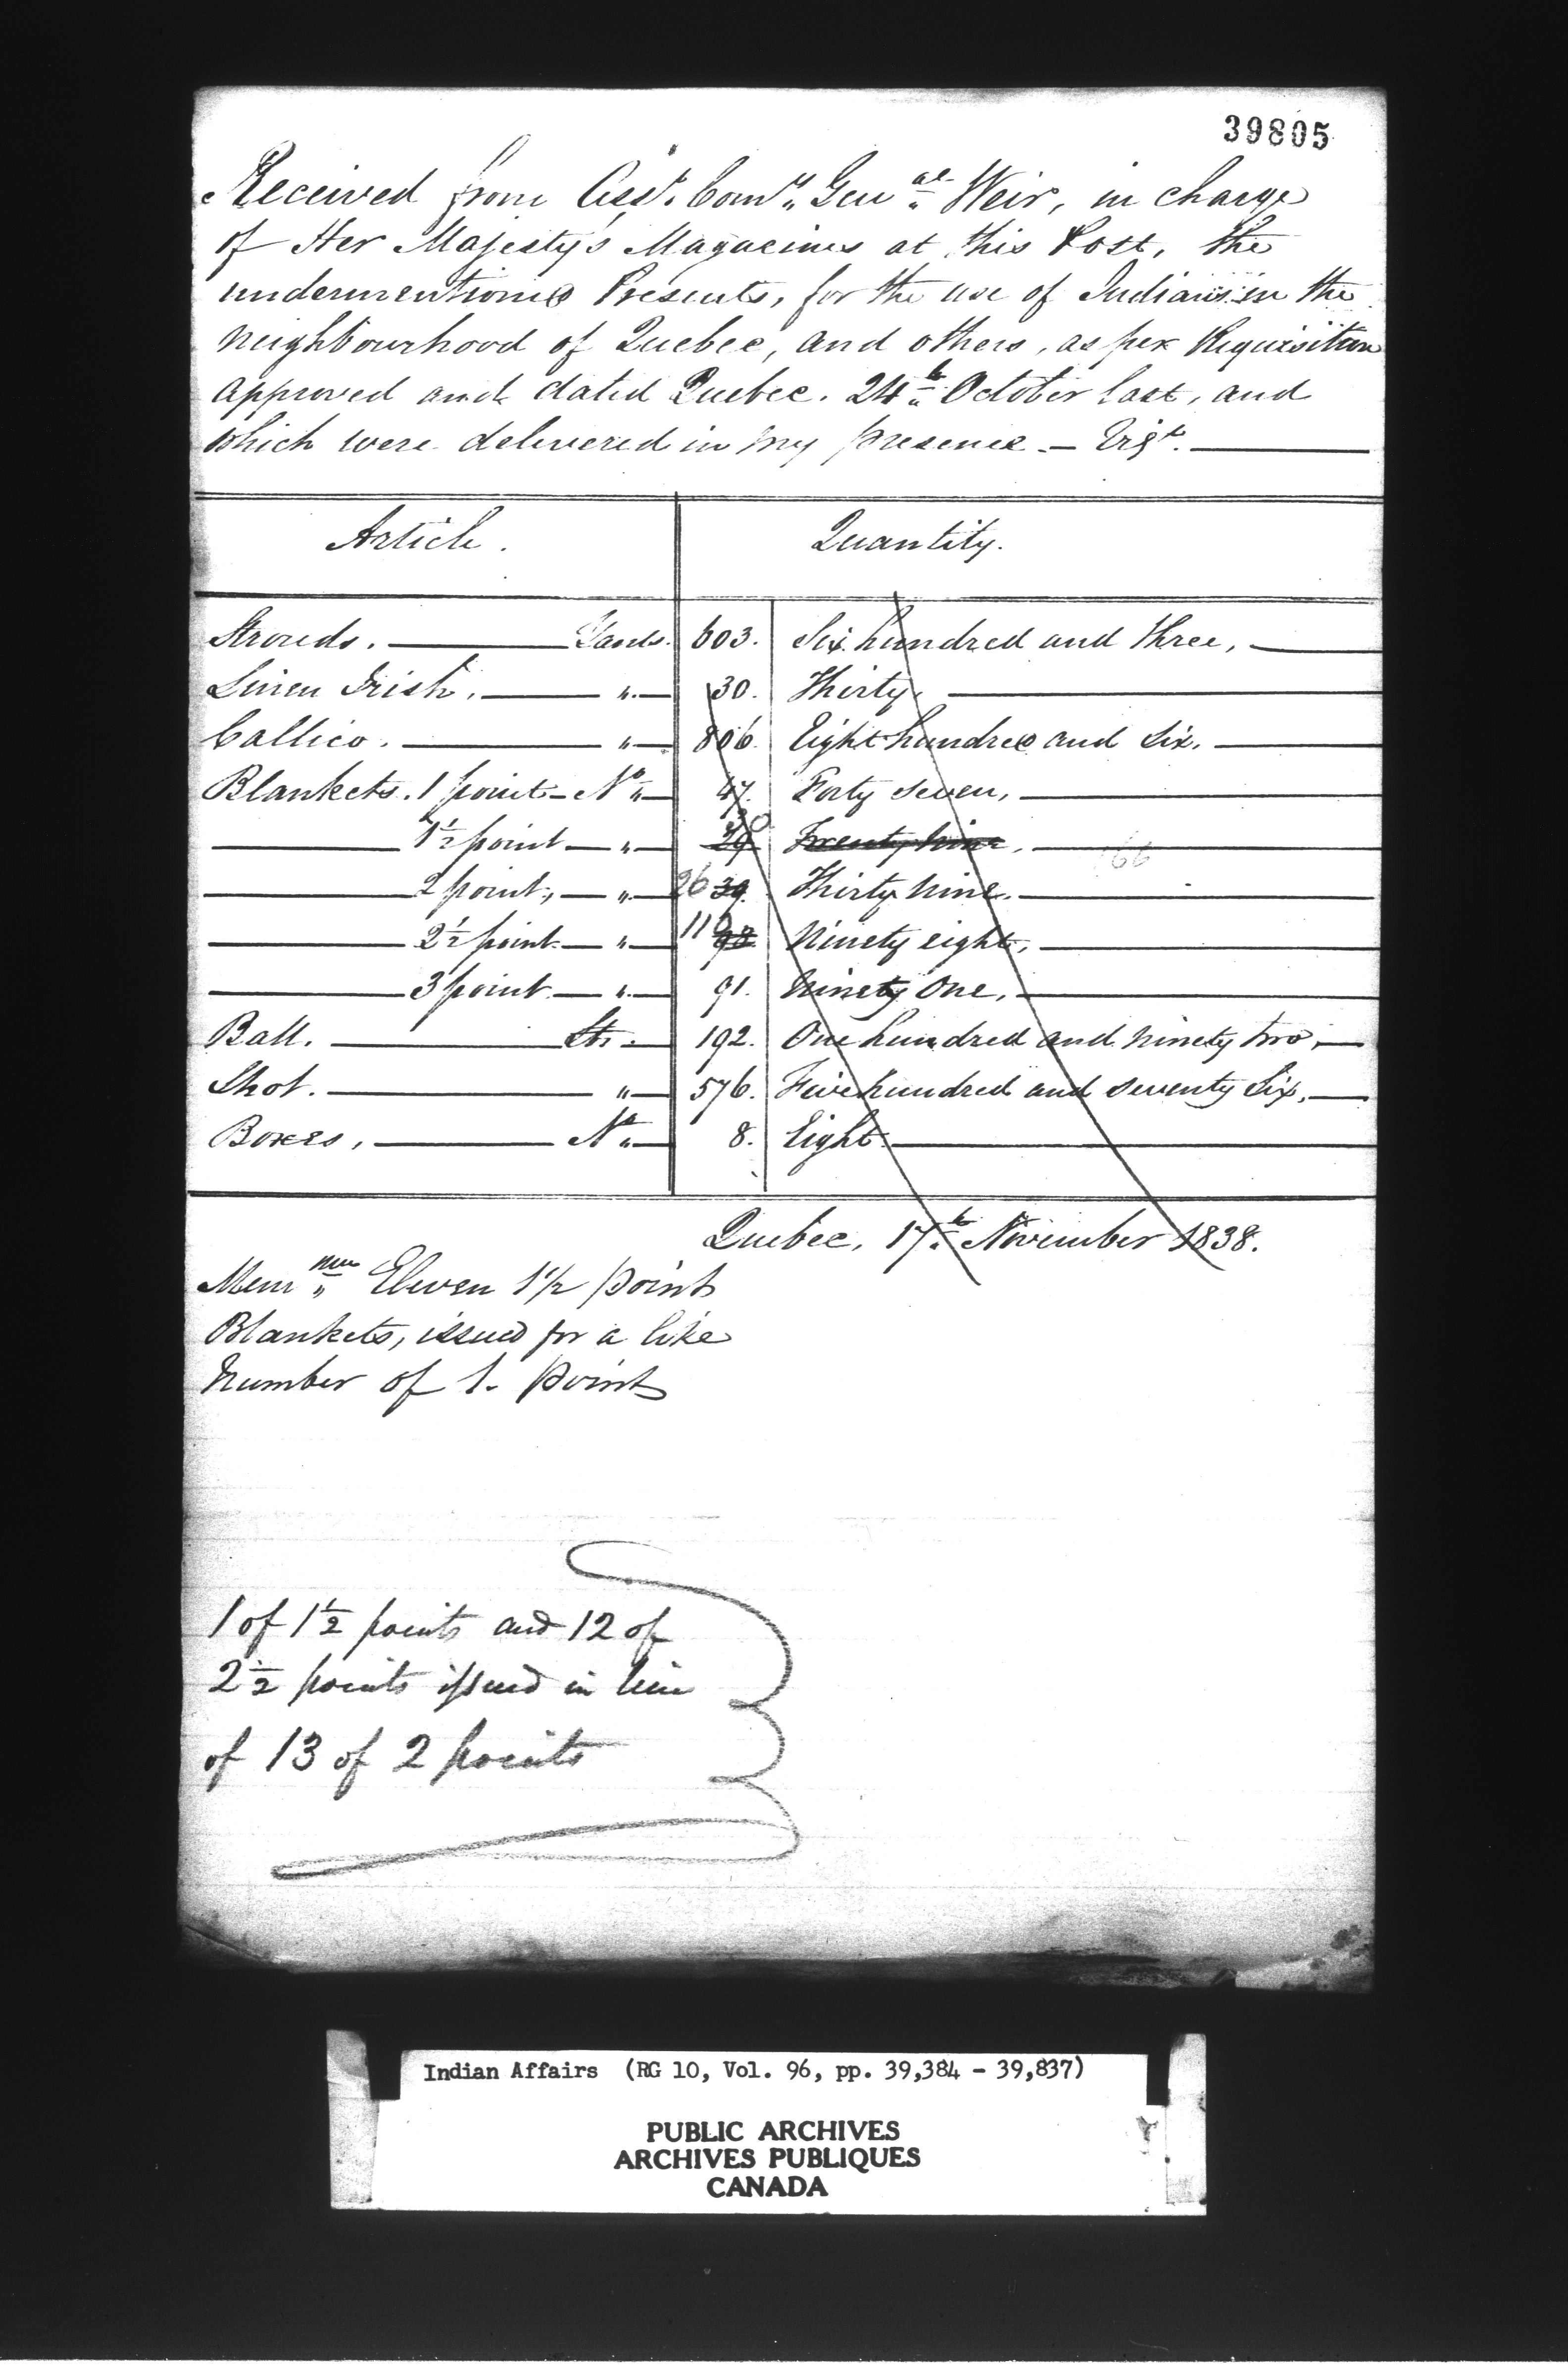 39805
Received from Asst. Comy. Genal. Weir, in charge
of Her Majesty's Magazines at this Post, the
undermentioned Presents, for the use of Indians in the
neighbourhood of Quebec, and others, as per Requisition
approved and dated Quebec. 24th October last, and
which were delivered in my presence — Vizt.
Article. Quantity.
Strouds. Yards. 603. Six hundred and three,
Linen Irish. " 30. Thirty,
Callico. " 806. Eight hundred and Six.
Blankets. 1 point No. 47. Forty Seven,
1½ point " 30 29 Twenty nine,
166
2 point, " 26 39. Thirty Nine.
2½ point " 110 98 Ninety eight,
3 point " 91. Ninety One,
Ball. lbs. 192. One hundred and ninety two,
Shot. " 576. Five hundred and seventy Six,
Boxes, No. 8. Eight.
Quebec, 17th November 1838.
Memm Eleven 1½ point
Blankets, issued for a like
Number of 1. point
1 of 1½ points and 12 of
2½ points issued in lieu
of 13 of 2 points
Indian Affairs (RG 10, Vol. 96, pp. 39,384 - 39,837)
PUBLIC ARCHIVES
ARCHIVES PUBLIQUES
CANADA